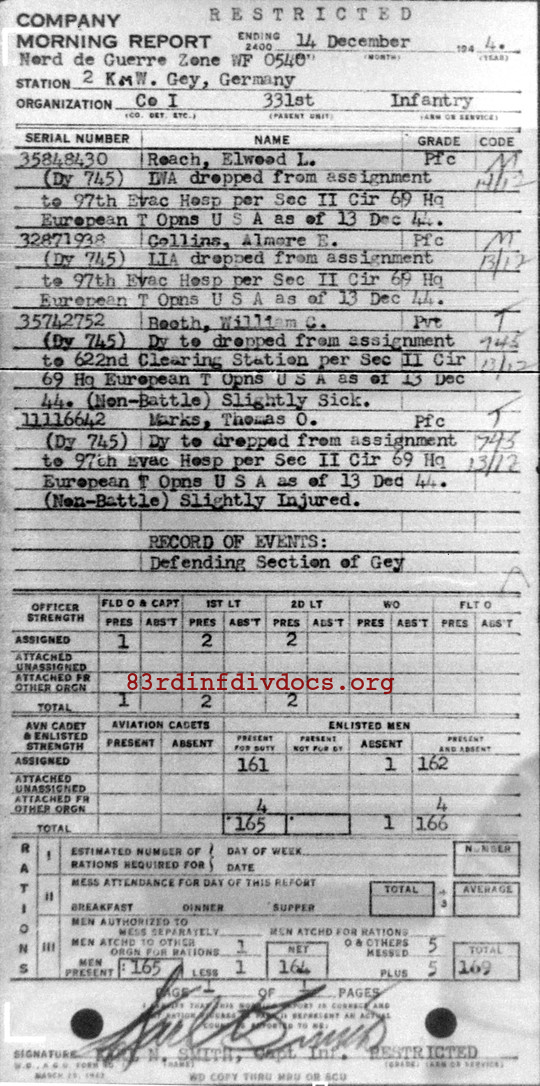 RESTRICTED
COMPANY
MORNING REPORT ENDING 2400 14 December 194 4.
(MONTH) (YEAR)
Nord de Guerre Zone WF 0540
STATION 2 KmW. Gey, Germany
ORGANIZATION Co I 331st Infantry
(CO. DET. ETC.) (PARENT UNIT) (ARM OR SERVICE)
SERIAL NUMBER NAME GRADE CODE
35848430 Roach, Elwood L. Pfc M
(Dy 745) LWA dropped from assignment 14/12
to 97th Evac Hosp per Sec II Cir 69 Hq
European T Opns U S A as of 13 Dec 44.
32871938 Collins, Almore E. Pfc M
(Dy 745) LIA dropped from assignment 13/12
to 97th Evac Hosp per Sec II Cir 69 Hq
European T Opns U S A as of 13 Dec 44.
35742752 Booth, William C. Pvt T
(Dy 745) Dy to dropped from assignment 745
to 622nd Clearing Station per Sec II Cir 13/12
69 Hq European T Opns U S A as of 13 Dec
44. (Non-Battle) Slightly Sick.
11116642 Marks, Thomas O. Pfc T
(Dy 745) Dy to dropped from assignment 745
to 97th Evac Hosp per Sec II Cir 69 Hq 13/12
European T Opns U S A as of 13 Dec 44.
(Non-Battle) Slightly Injured.
RECORD OF EVENTS:
Defending Section of Gey
OFFICER STRENGTH FLD O & CAPT 1ST LT 2D LT WO FLT O
PRES ABS'T PRES ABS'T PRES ABS'T PRES ABS'T PRES ABS'T
ASSIGNED 1 2 2
ATTACHED UNASSIGNED
ATTACHED FR OTHER ORGN
83rdinfdivdocs.org
TOTAL 1 2 2
AVN CADET & ENLISTED STRENGTH AVIATION CADETS ENLISTED MEN
PRESENT ABSENT PRESENT FOR DUTY PRESENT NOT FOR DY ABSENT PRESENT AND ABSENT
ASSIGNED 161 1 162
ATTACHED UNASSIGNED
ATTACHED FR OTHER ORGN 4 4
TOTAL 165 1 166
RATIONS
I ESTIMATED NUMBER OF RATIONS REQUIRED FOR DAY OF WEEK DATE NUMBER
II MESS ATTENDANCE FOR DAY OF THIS REPORT TOTAL ÷ 3 AVERAGE
BREAKFAST DINNER SUPPER
III MEN AUTHORIZED TO MESS SEPARATELY MEN ATCHD FOR RATIONS
MEN ATCHD TO OTHER ORGN FOR RATIONS 1 NET O & OTHERS MESSED 5 TOTAL
MEN PRESENT 165 LESS 1 164 PLUS 5 169
PAGE 1 OF 1 PAGES
I CERTIFY THAT THIS MORNING REPORT IS CORRECT AND
SIGNATURE N. SMITH, Capt Inf. RESTRICTED
(NAME) (GRADE) (ARM OR SERVICE)
W.D., A.G.O. FORM NO. 1
WD COPY THRU MRU OR SCU